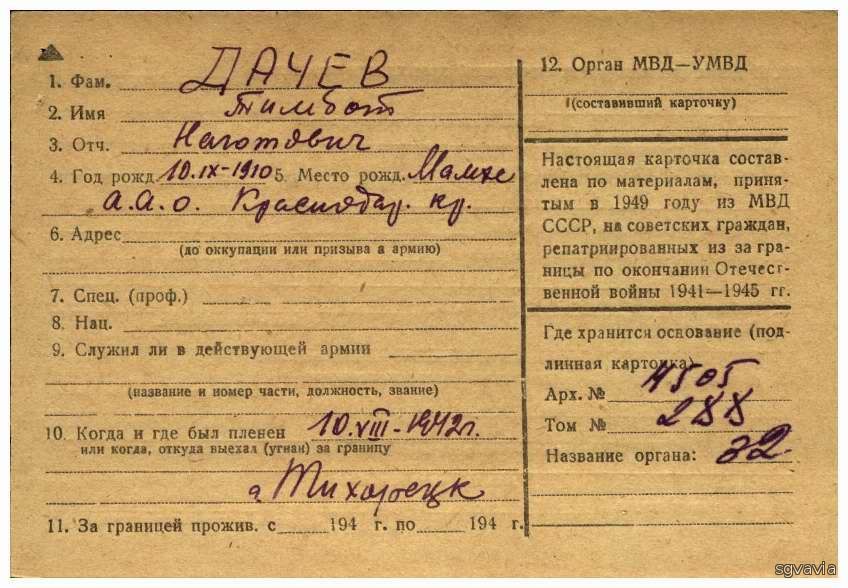 1. Фам. ДАЧЕВ
2. Имя Тимбот
3. Отч. Наготович
4. Год рожд. 10.IX-1910 5. Место рожд. Мамхе
А.А.О. Краснодар. кр.
6. Адрес
(до оккупации или призыва а армию)
7. Спец. (проф.)
8. Нац.
9. Служил ли в действующей армии
(название и номер части, должность, звание)
10. Когда и где был пленен 10.VIII-1942г.
или когда, откуда выехал (угнан) за границу
г. Тихорецк
11. За границей прожив. с 194 г. по 194 г.
12. Орган МВД—УМВД
(составивший карточку)
Настоящая карточка состав-
лена по материалам, приня-
тым в 1949 году из МВД
СССР, на советских граждан,
репатриированных из за гра-
ницы по окончании Отечест-
венной войны 1941—1945 гг.
Где хранится основание (под-
линная карточка)
Арх. № 4505
Том № 288
Название органа: 32
sgvavia